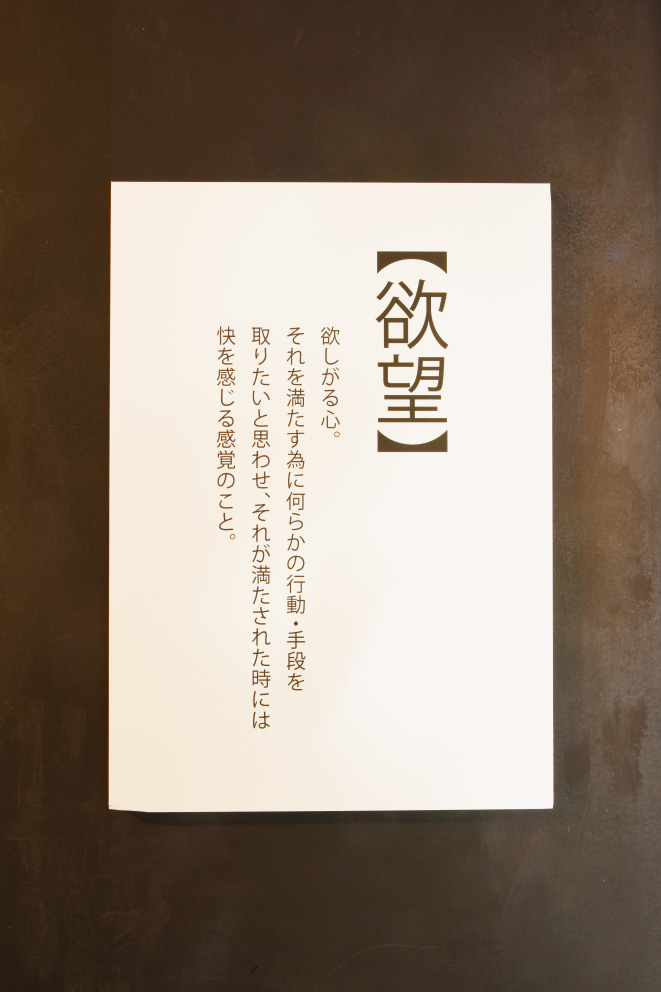 【欲望】
欲しがる心。
それを満たす為に何らかの行動・手段を
取りたいと思わせ、それが満たされた時には
快を感じる感覚のこと。